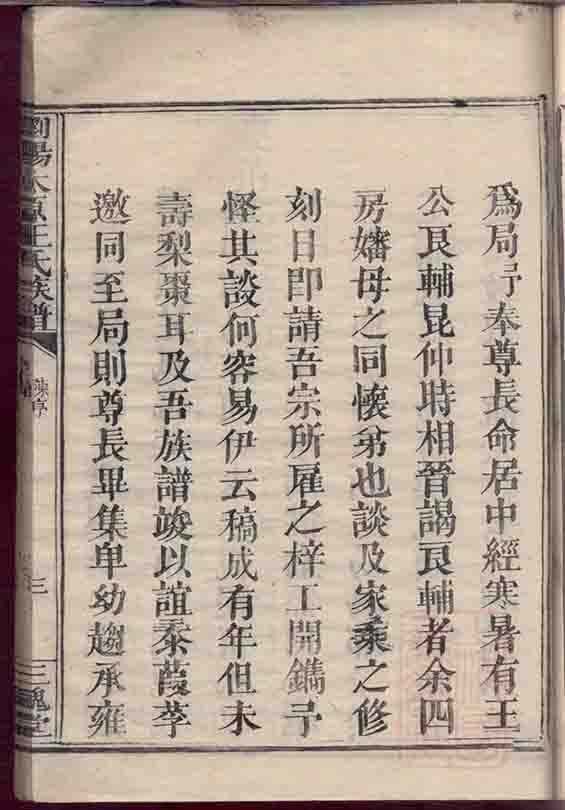 爲局予奉尊長命居中經寒暑有王
公艮輔昆仲時相晉謁艮輔者余四
房嬸母之同懷弟也談及家乘之修
刻日卽請吾宗所雇之梓工開鐫予
怪其談何容易伊云稿成有年但未
壽梨棗耳及吾族譜竣以誼忝葭莩
邀同至局則尊長畢集卑幼趨承雍
瀏陽 王氏族譜
序
三
三槐堂